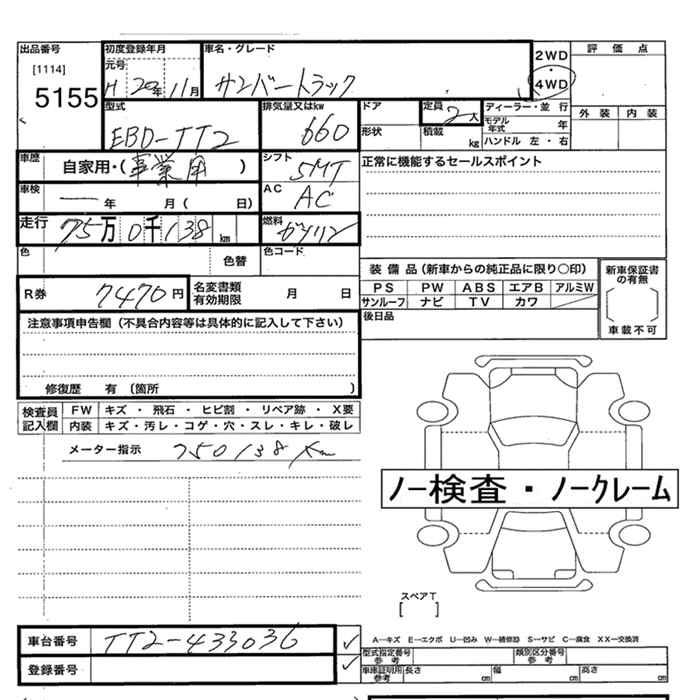 出品番号
[1114]
5155
初度登録年月
元号
H 20年 11月
車名・グレード
サンバートラック
2WD
・
4WD
評価点
外装 内装
型式
EBD-TT2
排気量又はkw
660
ドア
形状
定員
2人
積載
kg
ディーラー・並行
モデル年式 年
ハンドル 左・右
車歴
自家用・(事業用)
シフト
5MT
正常に機能するセールスポイント
車検
― 年 月 ( 日)
AC
AC
走行
75万0千138km
燃料
ガソリン
色
色替
色コード
装備品(新車からの純正品に限り○印)
PS PW ABS エアB アルミW
サンルーフ ナビ TV カワ
後日品
新車保証書の有無
[ ]
車載不可
R券
7470円
名変書類有効期限 月 日
注意事項申告欄(不具合内容等は具体的に記入して下さい)
修復歴 有 (箇所 )
検査員記入欄
FW キズ・飛石・ヒビ割・リペア跡・X要
内装 キズ・汚レ・コゲ・穴・スレ・キレ・破レ
メーター指示 750138Km
ノー検査・ノークレーム
スペアT
[ ]
車台番号
TT2-433036
✓
登録番号
✓
A―キズ E―エクボ U―凹み W―補修跡 S―サビ C―腐食 XX―交換済
型式指定番号参考
類別区分番号参考
車庫証明用参考 長さ cm 幅 cm 高さ cm